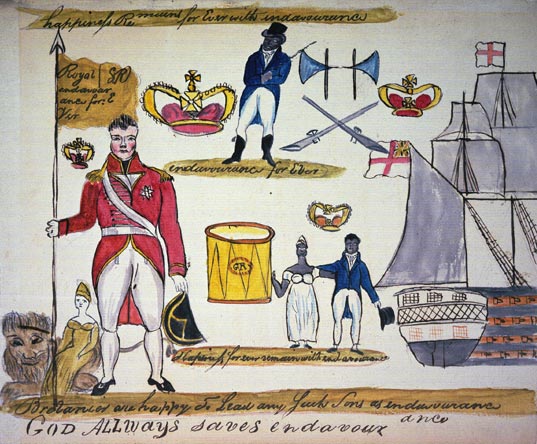 happiness Remains for Ever with endavourance
Royal GR
endavour
ance for E
Ver
endavourance for Ever
GR
for ever remain with endavourance
are happy To Lead any Such Sons as endavourance
GOD ALLWays saves endavourance